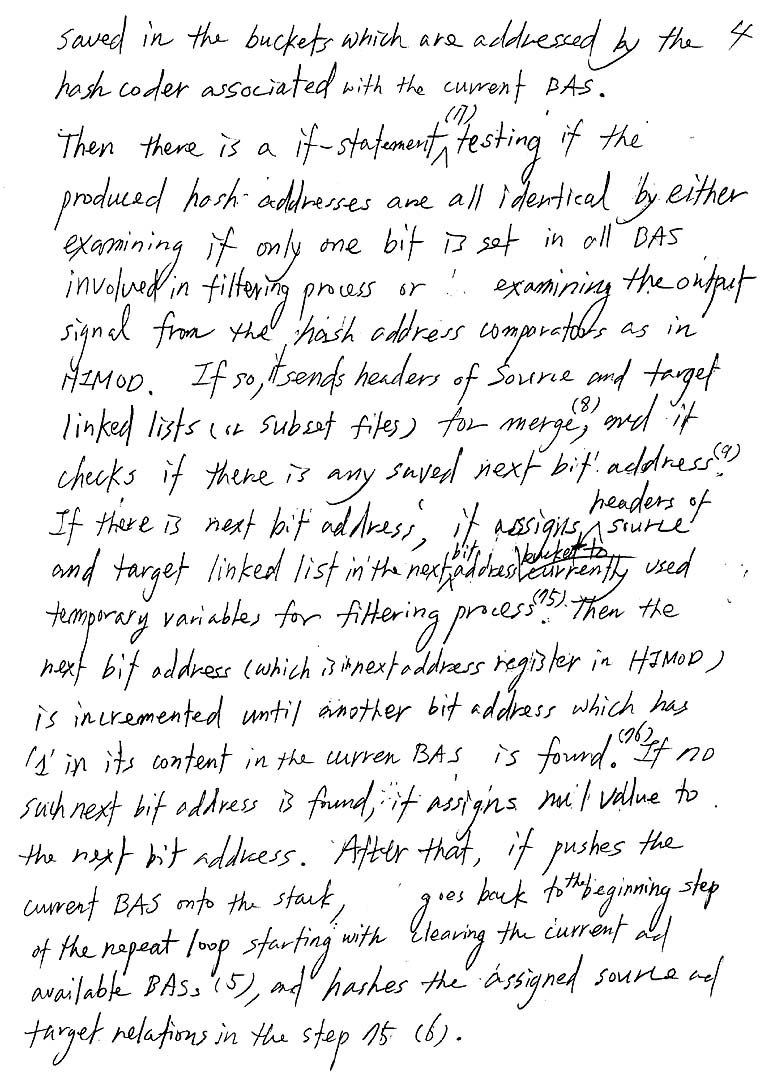 saved in the buckets which are addressed by the 4
hash coder associated with the current BAS.
Then there is a if-statement (17) testing if the
produced hash addresses are all identical by either
examining if only one bit is set in all BAS
involved in filtering process or examining the output
signal from the hash address comparators as in
HIMOD. If so, it sends headers of source and target
linked lists (or subset files) for merge (8), and it
checks if there is any saved next bit address (9).
If there is next bit address, it assigns headers of source
and target linked list in the next bit address bucket to currently used
temporary variables for filtering process (15). Then the
next bit address (which is in next address register in HIMOD)
is incremented until another bit address which has
'1' in its content in the curren BAS is found. (16) If no
such next bit address is found, it assigns nul value to
the next bit address. After that, it pushes the
current BAS onto the stack, goes back to the beginning step
of the repeat loop starting with clearing the current ad
available BASs (5), and hashes the assigned source ad
target relations in the step 15 (6).